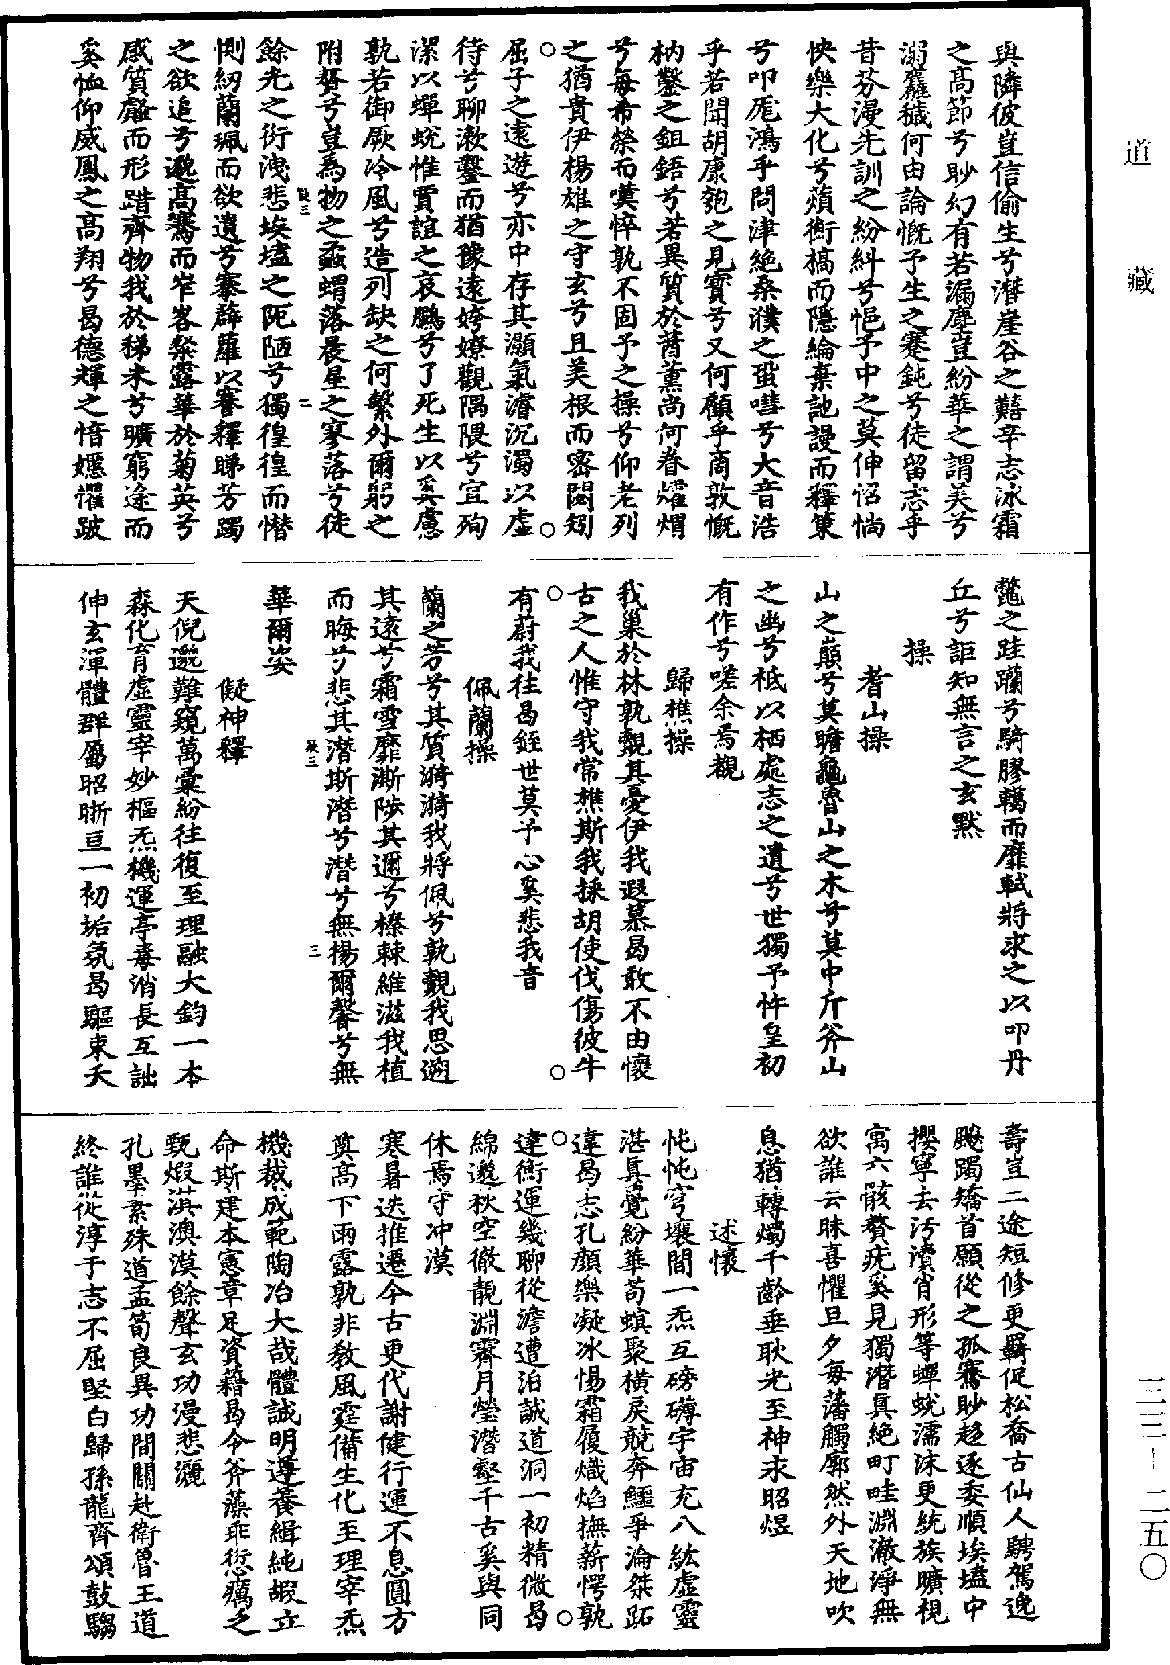 道藏
與隣彼豈信偷生兮潛崖谷之囏辛志泳霜
之高節兮眇幻有若漏塵豈紛華之謂美兮
溺麤穢何由論慨予生之蹇鈍兮徒留志乎
昔芬漫先訓之紛糾兮悒予中之莫伸怊惝
怏樂大化兮蘋衡槁而隱綸棄訑謾而釋策
兮叩厖鴻乎問津絶桑濮之蛩嘒兮大音浩
乎若聞胡康匏之見寶兮又何顧乎商敦慨
枘鑿之鉏鋙兮若異質於蕕薰尚何眷燿熠
兮每希榮而嘆悴孰不固予之操兮仰老列
之猶貴伊楊雄之守玄兮且美根而密閟矧
屈子之遠遊兮亦中存其灝氣濬沉濁以虛
待兮聊漱鑿而猶豫遠姱嫽觀隅隈兮宜殉
潔以蟬蛻惟賈誼之哀鵩兮了死生以奚慮
孰若御厥冷風兮造列缺之何繁外爾躬之
附贅兮豈爲物之蝨蝟落晨星之寥落兮徒
餘光之衒洩悲埃壒之阨陋兮獨徨徨而懵
惻紉蘭珮而欲遺兮搴薜蘿以褰釋睇芳躅
之欲追兮邈高騫而牢客粲露華於菊英兮
感質齷而形踖齊物我於稊米兮曠窮途而
奚恤仰威鳳之高翔兮曷德輝之愔嫕懼跛
鼈之跬躝兮騎膠轕而靡軾將求之以叩丹
丘兮詎知無言之玄默
操
耆山操
山之巔兮莫瞻龜魯山之木兮莫中斤斧山
之幽兮柢以栖處志之遺兮世獨予忤皇初
有作兮嗟余焉覩
歸樵操
我巢於林孰覯其憂伊我遐慕曷敢不由懷
古之人惟守我常樵斯我採胡使伐傷彼牛
有蔚我往曷銍世莫予心奚悲我音
佩蘭操
蘭之芳兮其質漪漪我將佩兮孰覯我思遡
其遠兮霜雪靡澌陟其邇兮榛棘維滋我植
而晦兮悲其潛斯潛兮潛兮無揚爾馨兮無
華爾姿
儗神釋
天倪邈難窺萬彙紛往復至理融大鈞一本
森化育虛靈宰妙樞炁機運亭毒消長互詘
伸玄渾體群屬昭晣亘一初垢氛曷驅束夭
壽豈二途短修更羇促松喬古仙人騁駕逸
颷躅矯首願從之孤騫眇超逐委順埃壒中
攖寧去汚瀆肖形等蟬蛻濡沫更統族曠視
寓六骸贅疣奚見獨潛真絶町畦淵澈淨無
欲誰云昧喜懼旦夕每藩觸廓然外天地吹
息猶轉燭千齡垂耿光至神求昭煜
述懷
忳忳穹壤間一炁互磅礴宇宙充八紘虛靈
湛真覺紛華苟蝡聚橫戾競奔鱷爭淪桀跖
違曷志孔顏樂凝冰惕霜履熾焰撫薪愕孰
達衡運幾聊從澹遭泊誠道洞一初精微曷
綿邈秋空徹靚淵霽月瑩潛壑千古奚與同
休焉守冲漠
寒暑迭推遷今古更代謝健行運不息圓方
奠高下雨露孰非教風霆備生化至理宰炁
機裁成範陶冶大哉體誠明遵養緝純嘏立
命斯建本憲章足資藉曷今斧藻乖愆癘之
甄煆淇澳漠餘聲玄功漫悲灑
孔墨紊殊道孟荀良異功間關赴衛魯王道
終誰從淳于志不屈堅白歸孫龍齊頌鼓騶
三三—二五〇